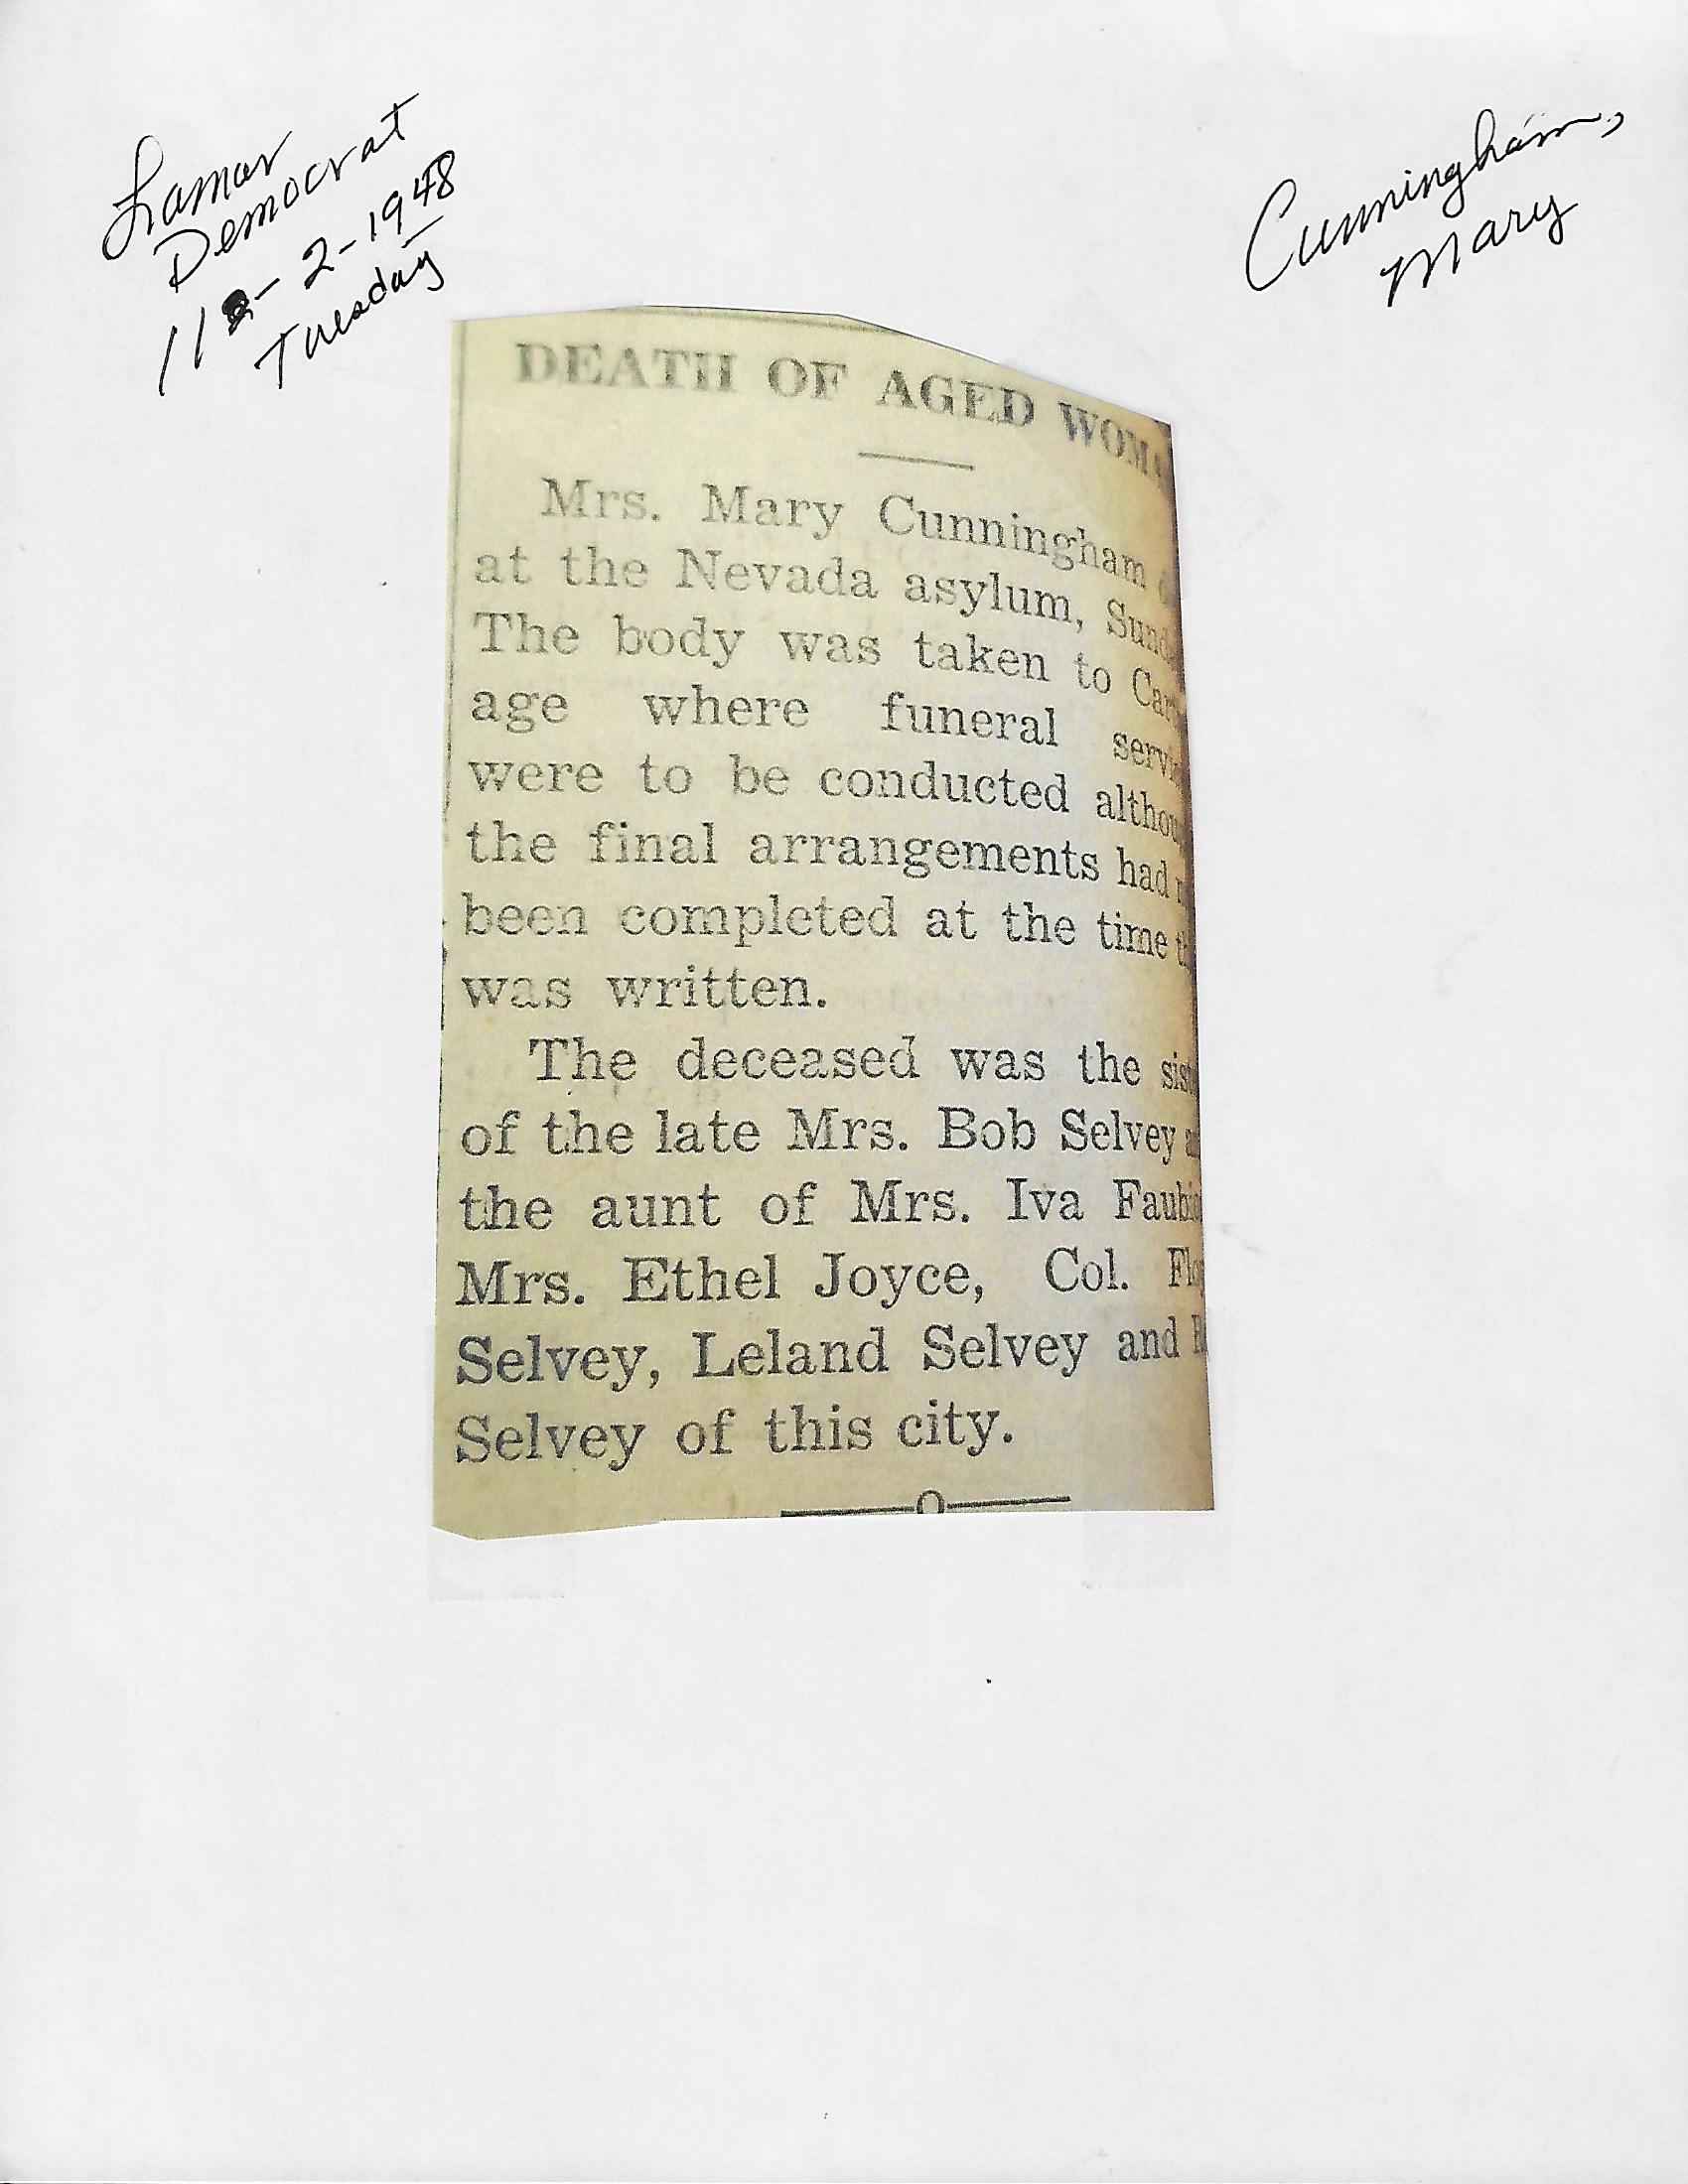 Lamar
Democrat
11-2-1948
Tuesday
Cunningham,
Mary
DEATH OF AGED WOMA
Mrs. Mary Cunningham
at the Nevada asylum, Sund
The body was taken to Car
age where funeral servi
were to be conducted althou
the final arrangements had
been completed at the time t
was written.
The deceased was the sist
of the late Mrs. Bob Selvey
the aunt of Mrs. Iva Faubio
Mrs. Ethel Joyce, Col. Flo
Selvey, Leland Selvey and
Selvey of this city.